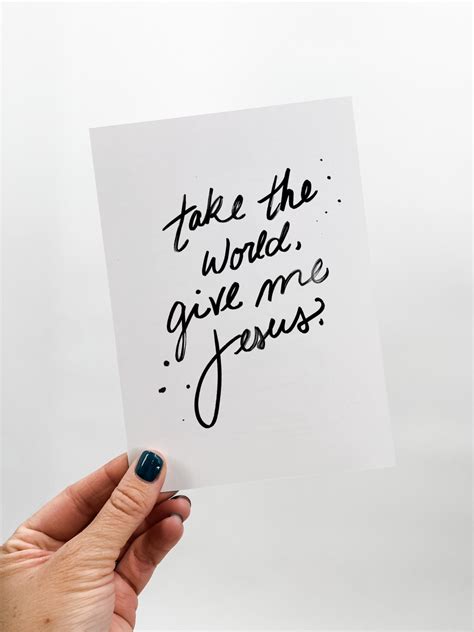 take the
world,
give me
Jesus.